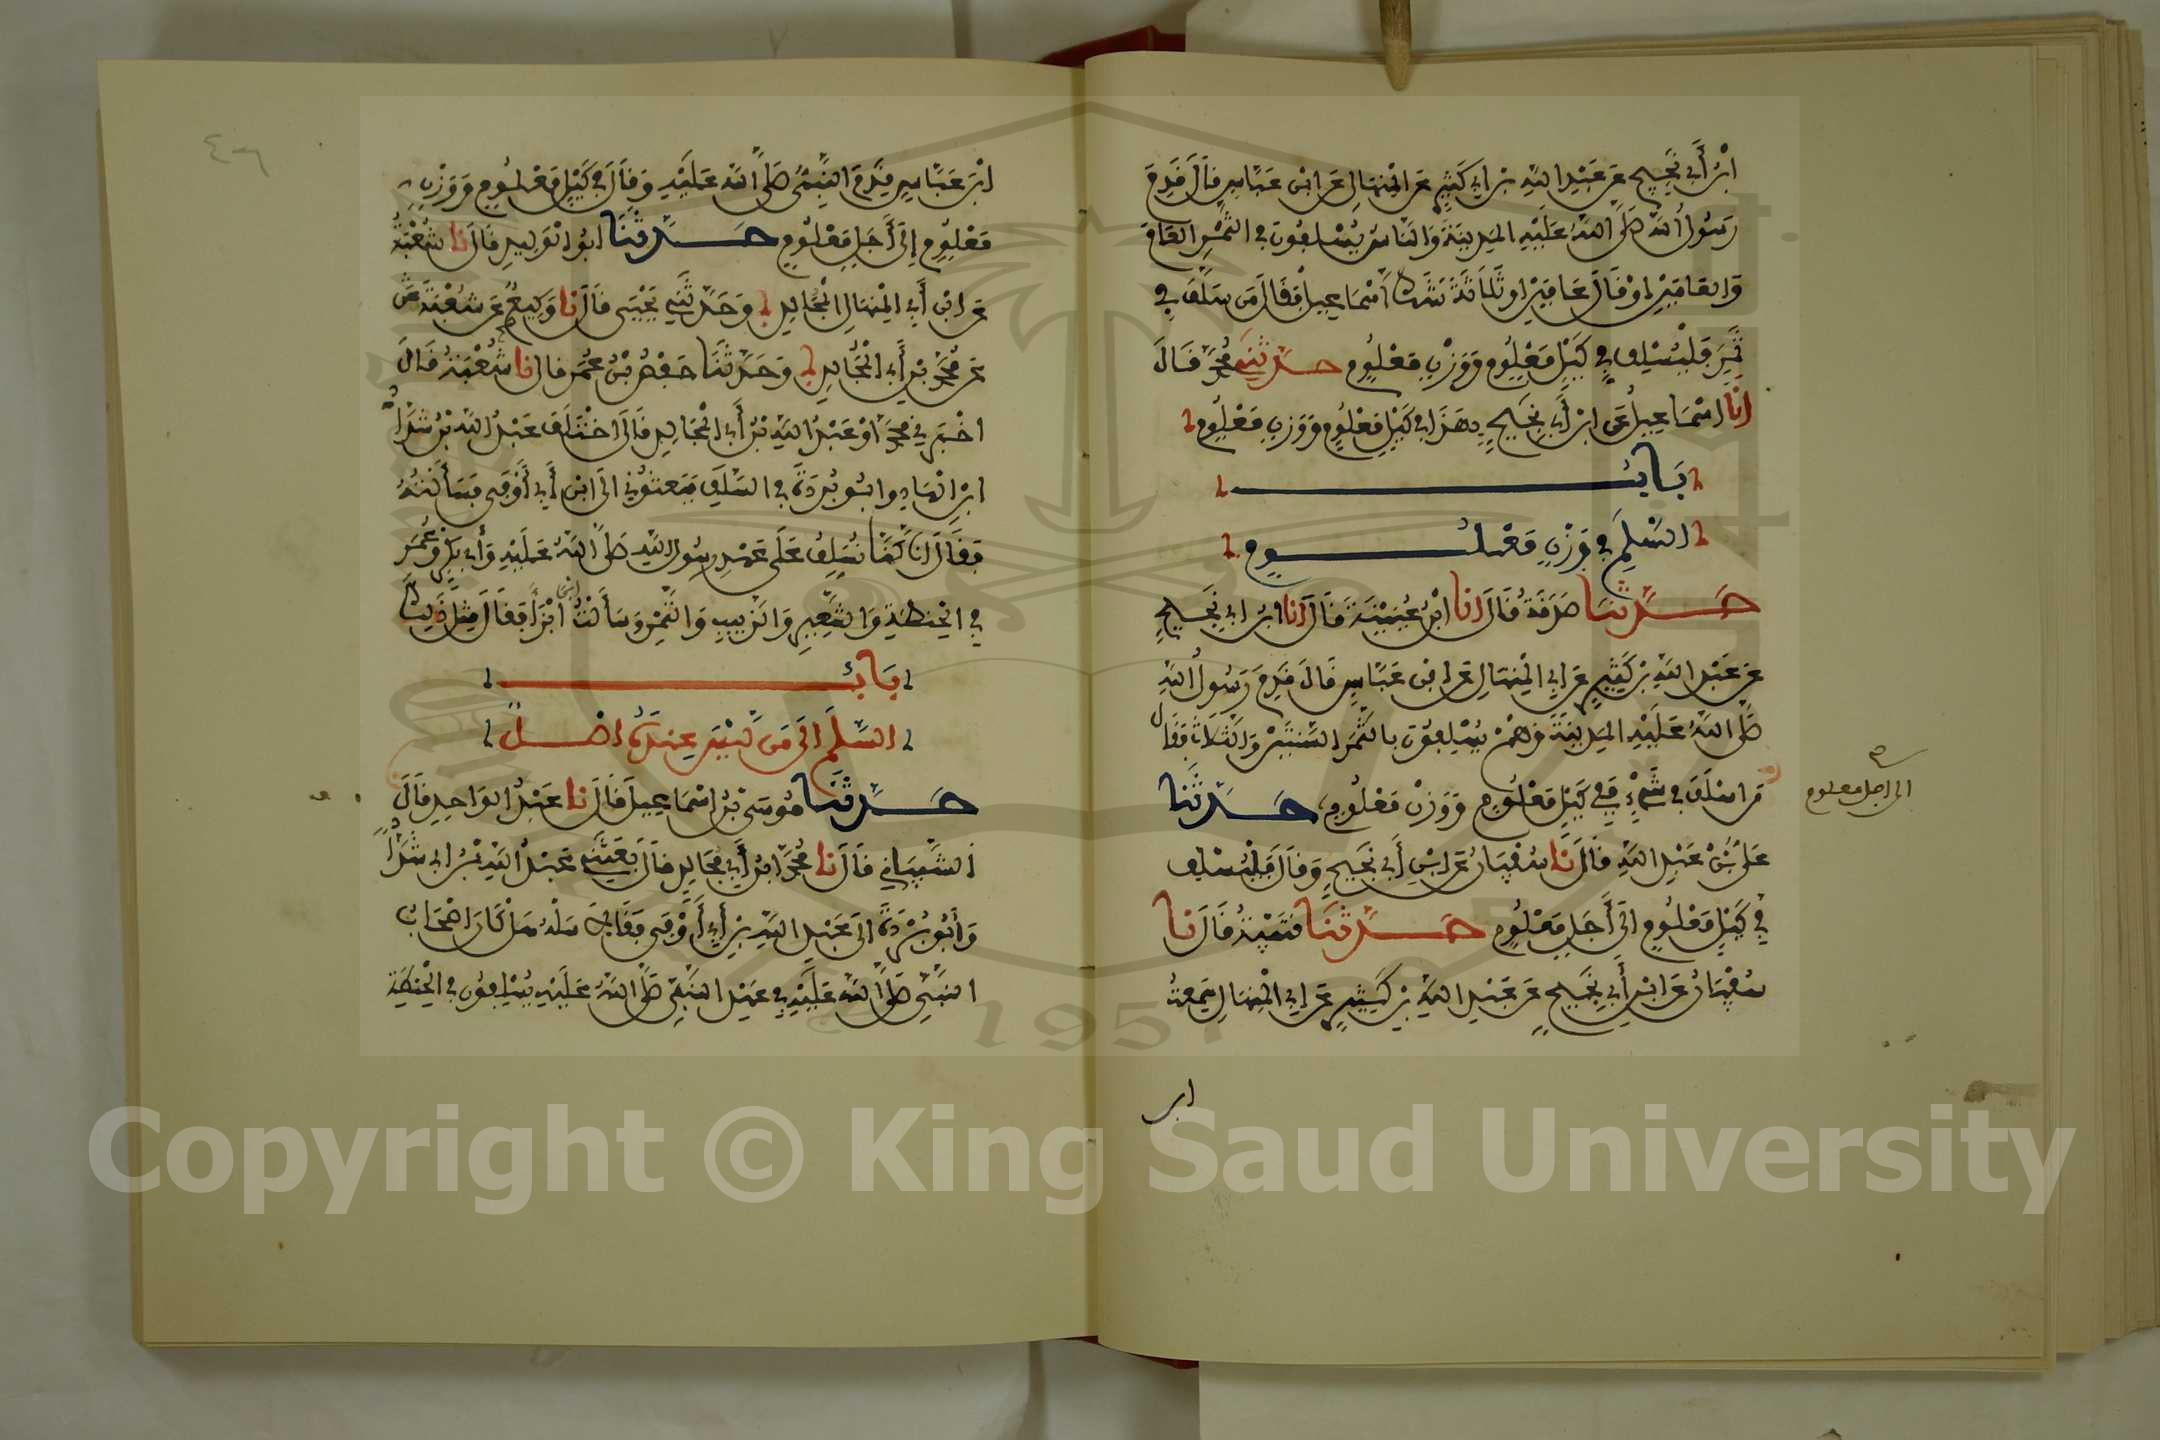 ابْنُ أَبِي نَجِيحٍ عَنْ عَبْدِ اللهِ بْنِ أَبِي كَثِيرٍ عَنْ أَبِي الْمِنْهَالِ عَنِ ابْنِ عَبَّاسٍ قَالَ قَدِمَ
رَسُولُ اللهِ صَلَّى اللهُ عَلَيْهِ الْمَدِينَةَ وَالنَّاسُ يُسْلِفُونَ فِي الثَّمَرِ الْعَامَ
وَالْعَامَيْنِ أَوْ قَالَ عَامَيْنِ أَوْ ثَلَاثَةً شَكَّ إِسْمَاعِيلُ فَقَالَ مَنْ سَلَّفَ فِي
تَمْرٍ فَلْيُسْلِفْ فِي كَيْلٍ مَعْلُومٍ وَوَزْنٍ مَعْلُومٍ حَدَّثَنِي مُحَمَّدٌ قَالَ
أنا إِسْمَاعِيلُ عَنِ ابْنِ أَبِي نَجِيحٍ بِهَذَا فِي كَيْلٍ مَعْلُومٍ وَوَزْنٍ مَعْلُومٍ
بَابُ
السَّلَمِ فِي وَزْنٍ مَعْلُومٍ
حَدَّثَنَا صَدَقَةُ قَالَ أنا ابْنُ عُيَيْنَةَ قَالَ أنا ابْنُ أَبِي نَجِيحٍ
عَنْ عَبْدِ اللهِ بْنِ كَثِيرٍ عَنْ أَبِي الْمِنْهَالِ عَنِ ابْنِ عَبَّاسٍ قَالَ قَدِمَ رَسُولُ اللهِ
صَلَّى اللهُ عَلَيْهِ الْمَدِينَةَ وَهُمْ يُسْلِفُونَ بِالثَّمَرِ السَّنَتَيْنِ وَالثَّلَاثَ فَقَالَ
مَنْ أَسْلَفَ فِي شَيْءٍ فَفِي كَيْلٍ مَعْلُومٍ وَوَزْنٍ مَعْلُومٍ حَدَّثَنَا
الى اجل معلوم
عَلِيُّ بْنُ عَبْدِ اللهِ قَالَ نا سُفْيَانُ عَنِ ابْنِ أَبِي نَجِيحٍ وَقَالَ فَلْيُسْلِفْ
فِي كَيْلٍ مَعْلُومٍ إِلَى أَجَلٍ مَعْلُومٍ حَدَّثَنَا قُتَيْبَةُ قَالَ نا
سُفْيَانُ عَنِ ابْنِ أَبِي نَجِيحٍ عَنْ عَبْدِ اللهِ بْنِ كَثِيرٍ عَنْ أَبِي الْمِنْهَالِ سَمِعْتُ
ابن
ابْنَ عَبَّاسٍ قَدِمَ النَّبِيُّ صَلَّى اللهُ عَلَيْهِ وَقَالَ فِي كَيْلٍ مَعْلُومٍ وَوَزْنٍ
مَعْلُومٍ إِلَى أَجَلٍ مَعْلُومٍ حَدَّثَنَا أَبُو الْوَلِيدِ قَالَ نا شُعْبَةُ
عَنِ ابْنِ أَبِي الْمُجَالِدِ وَحَدَّثَنِي يَحْيَى قَالَ نا وَكِيعٌ عَنْ شُعْبَةَ عَنْ
عَنْ مُحَمَّدِ بْنِ أَبِي الْمُجَالِدِ وَحَدَّثَنَا حَفْصُ بْنُ عُمَرَ قَالَ نا شُعْبَةُ قَالَ
أَخْبَرَنِي مُحَمَّدٌ أَوْ عَبْدُ اللهِ بْنُ أَبِي الْمُجَالِدِ قَالَ اخْتَلَفَ عَبْدُ اللهِ بْنُ شَدَّادِ
ابْنِ الْهَادِ وَأَبُو بُرْدَةَ فِي السَّلَفِ فَبَعَثُونِي إِلَى ابْنِ أَبِي أَوْفَى فَسَأَلْتُهُ
فَقَالَ إِنَّا كُنَّا نُسْلِفُ عَلَى عَهْدِ رَسُولِ اللهِ صَلَّى اللهُ عَلَيْهِ وَأَبِي بَكْرٍ وَعُمَرَ
فِي الْحِنْطَةِ وَالشَّعِيرِ وَالزَّبِيبِ وَالتَّمْرِ وَسَأَلْتُ ابْنَ أَبْزَى فَقَالَ مِثْلَ ذَلِكَ
بَابُ
السَّلَمِ إِلَى مَنْ لَيْسَ عِنْدَهُ أَصْلٌ
حَدَّثَنَا مُوسَى بْنُ إِسْمَاعِيلَ قَالَ نا عَبْدُ الْوَاحِدِ قَالَ
الشَّيْبَانِي قَالَ نا مُحَمَّدُ بْنُ أَبِي مُجَالِدٍ قَالَ بَعَثَنِي عَبْدُ اللهِ بْنُ شَدَّادٍ
وَأَبُو بُرْدَةَ إِلَى عَبْدِ اللهِ بْنِ أَبِي أَوْفَى فَقَالَا سَلْهُ هَلْ كَانَ أَصْحَابُ
النَّبِيِّ صَلَّى اللهُ عَلَيْهِ فِي عَهْدِ النَّبِيِّ صَلَّى اللهُ عَلَيْهِ يُسْلِفُونَ فِي الْحِنْطَةِ
1957
Copyright © King Saud University